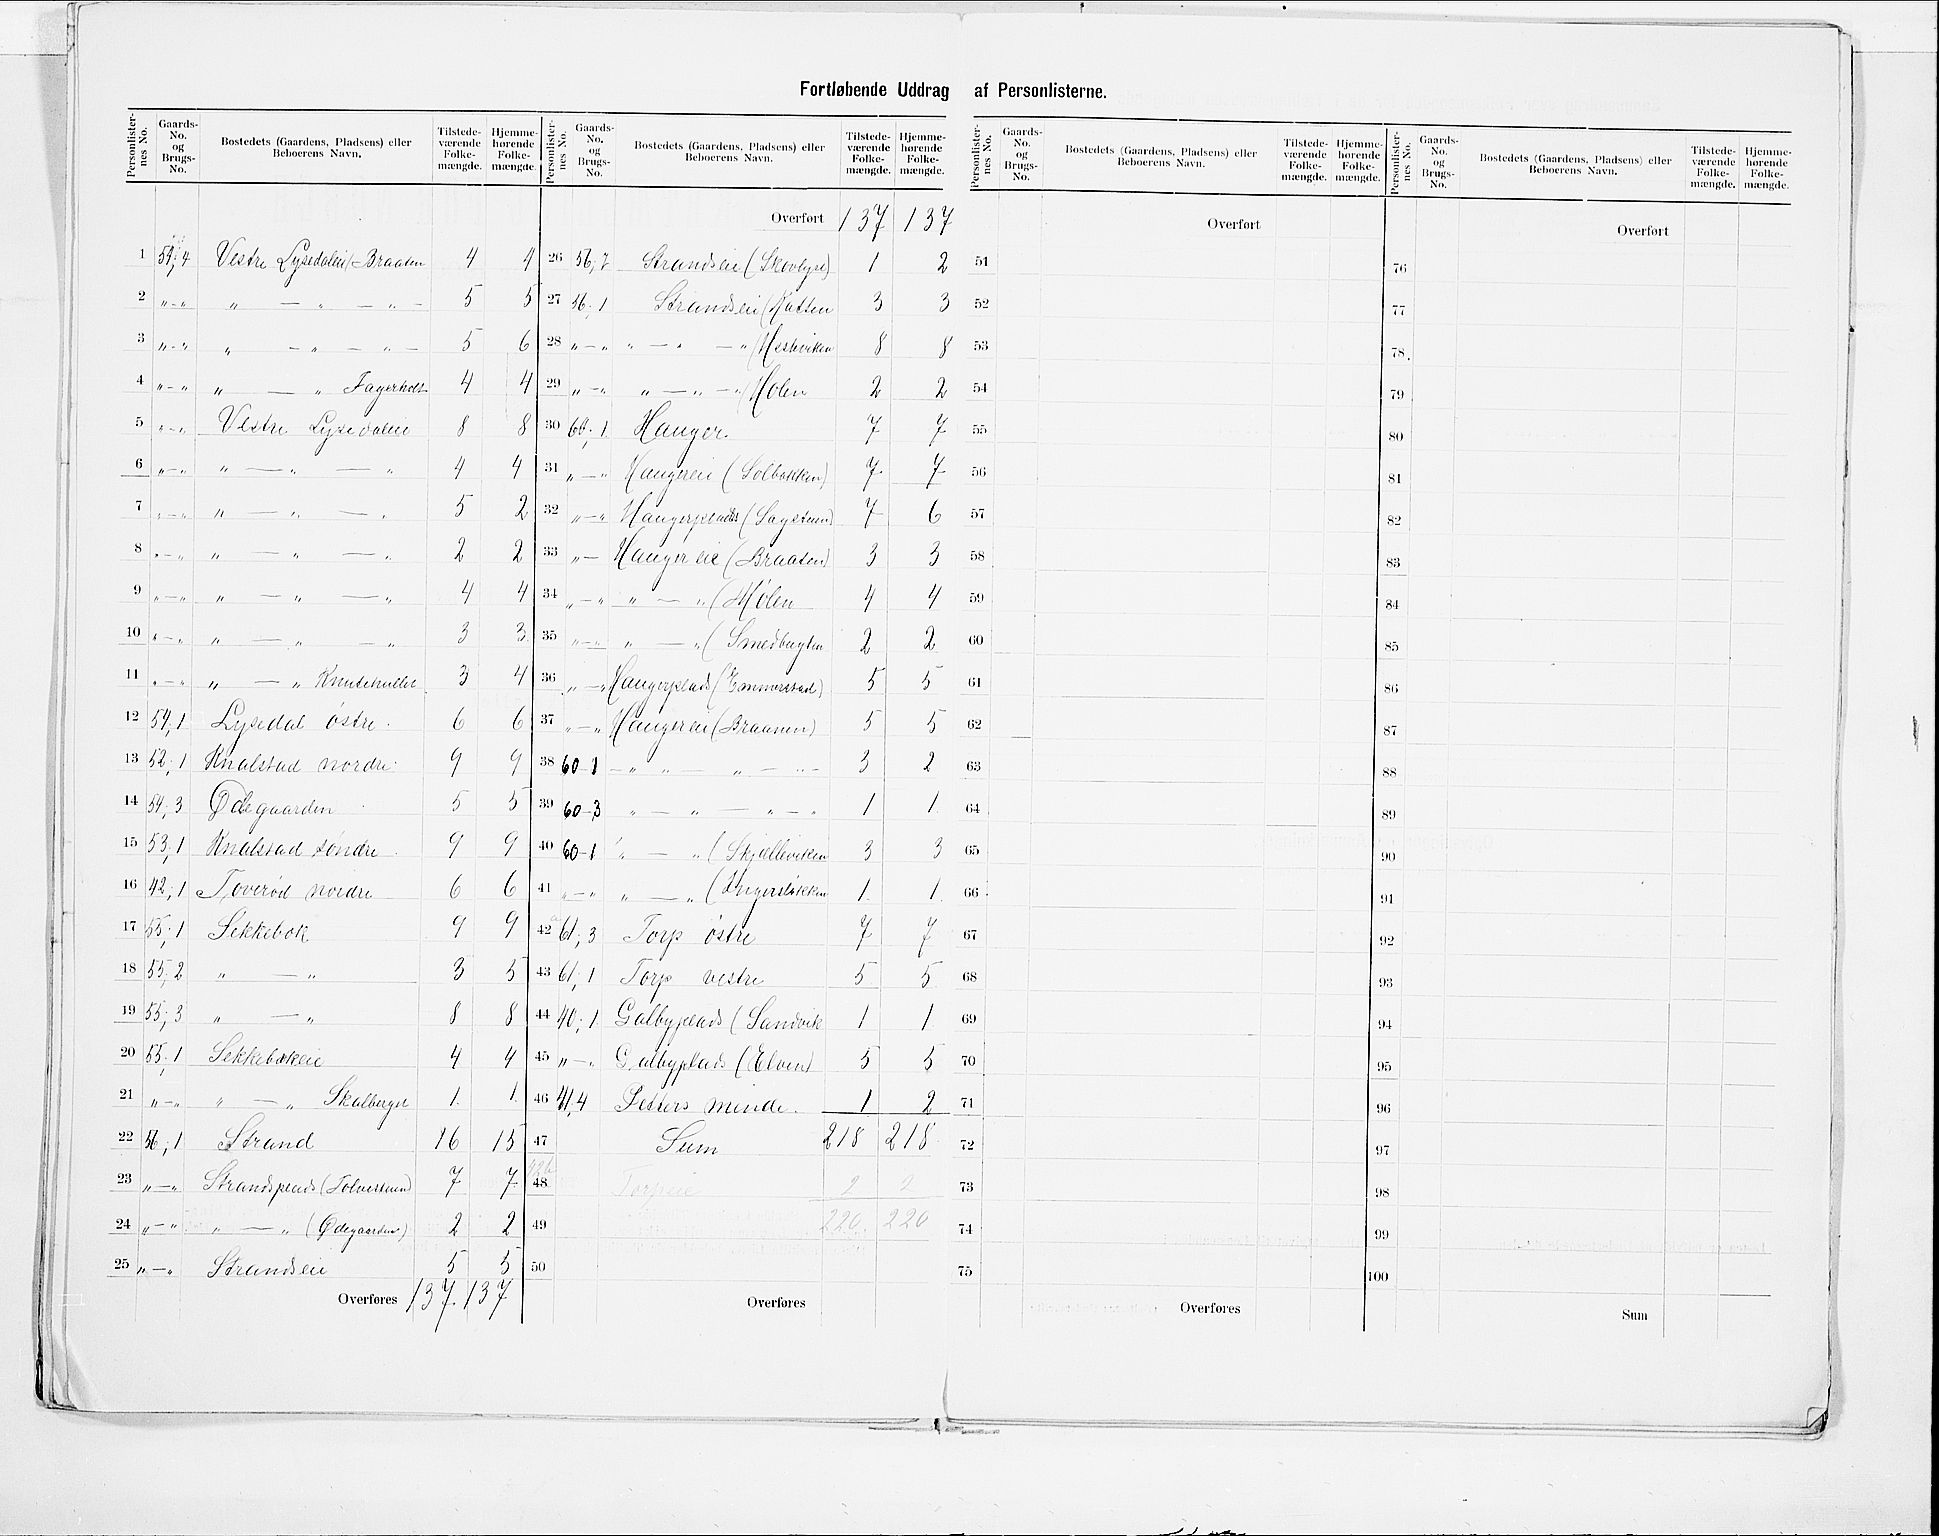 Fortløbende Uddrag af Personlisterne.
Personlisternes No. Gaards-No. og Brugs-No. Bostedets (Gaardens, Pladsens) eller Beboerens Navn. Tilstedeværende Folkemængde. Hjemmehørende Folkemængde.
1 54,4 Vestre Lysedaleie (Braaten 4 4
2 „–„ „ — „ — „ – 5 5
3 „–„ „ – „ — „ – 5 6
4 „–„ „ — „ Fagerholt 4 4
5 „–„ Vestre Lysedaleie 8 8
6 „–„ „ — „ — „ 4 4
7 „–„ „ — „ — „ 5 2
8 „–„ „ — „ — „ 2 2
9 „–„ „ — „ — „ 4 4
10 „–„ „ — „ — „ 3 3
11 „–„ „ — „ Knutehullet 3 4
12 54,1 Lysedal østre. 6 6
13 52,1 Knalstad nordre. 9 9
14 54,3 Ødegaarden 5 5
15 53,1 Knalstad søndre 9 9
16 42,1 Toverød nordre 6 6
17 55,1 Sekkebæk 9 9
18 55,2 „ — „ 3 5
19 55,3 „ — „ 8 8
20 55,1 Sekkebækeie 4 4
21 „–„ „ — „ Skalberget 1 1
22 56,1 Strand 16 15
23 „–„ Strandsplads (Tolverstuen) 7 7
24 „–„ „ — „ (Ødegaarden) 2 2
25 „–„ Strandseie 5 5
Overføres 137. 137
Personlisternes No. Gaards-No. og Brugs-No. Bostedets (Gaardens, Pladsens) eller Beboerens Navn. Tilstedeværende Folkemængde. Hjemmehørende Folkemængde.
Overført 137 137
26 56,7 Strandseie (Skovlyst) 1 2
27 56,1 Strandseie (Hatten 3 3
28 „–„ „ — „ — „ (Hestviken 8 8
29 „–„ „ — „ — „ (Holen 2 2
30 60,1 Hauger. 7 7
31 „–„ Haugereie (Solbakken) 7 7
32 „–„ Haugerplads (Sagstuen) 7 6
33 „– Haugereie (Braaten) 3 3
34 „–„ „ — „ (Mølen 4 4
35 „–„ „ — „ (Smedbugten 2 2
36 „–„ Haugerplads (Emmerstad) 5 5
37 „–„ Haugereie (Braanen) 5 5
38 60–1 – „ „ — „ — „ – 3 2
39 60–3 „ – „ — „ – „ 1 1
40 60–1 „ — „ (Skjælleviken 3 3
41 „–„ „ — „ 1 1
42 a 61,3 Torp østre 7 7
43 61,1 Torp vestre 5 5
44 40,1 Galbyplads (Sandvik 1 1
45 „–„ Galbyplads (Elven) 5 5
46 41,4 Petters minde. 1 2
47 Sum 218 218
42b
48 Torpeie 2 2
49 220. 220
50
Overføres
Personlisternes No. Gaards-No. og Brugs-No. Bostedets (Gaardens, Pladsens) eller Beboerens Navn. Tilstedeværende Folkemængde. Hjemmehørende Folkemængde.
Overført
51
52
53
54
55
56
57
58
59
60
61
62
63
64
65
66
67
68
69
70
71
72
73
74
75
Overføres
Personlisternes No. Gaards-No. og Brugs-No. Bostedets (Gaardens, Pladsens) eller Beboerens Navn. Tilstedeværende Folkemængde. Hjemmehørende Folkemængde.
Overført
76
77
78
79
80
81
82
83
84
85
86
87
88
89
90
91
92
93
94
95
96
97
98
99
100
Sum